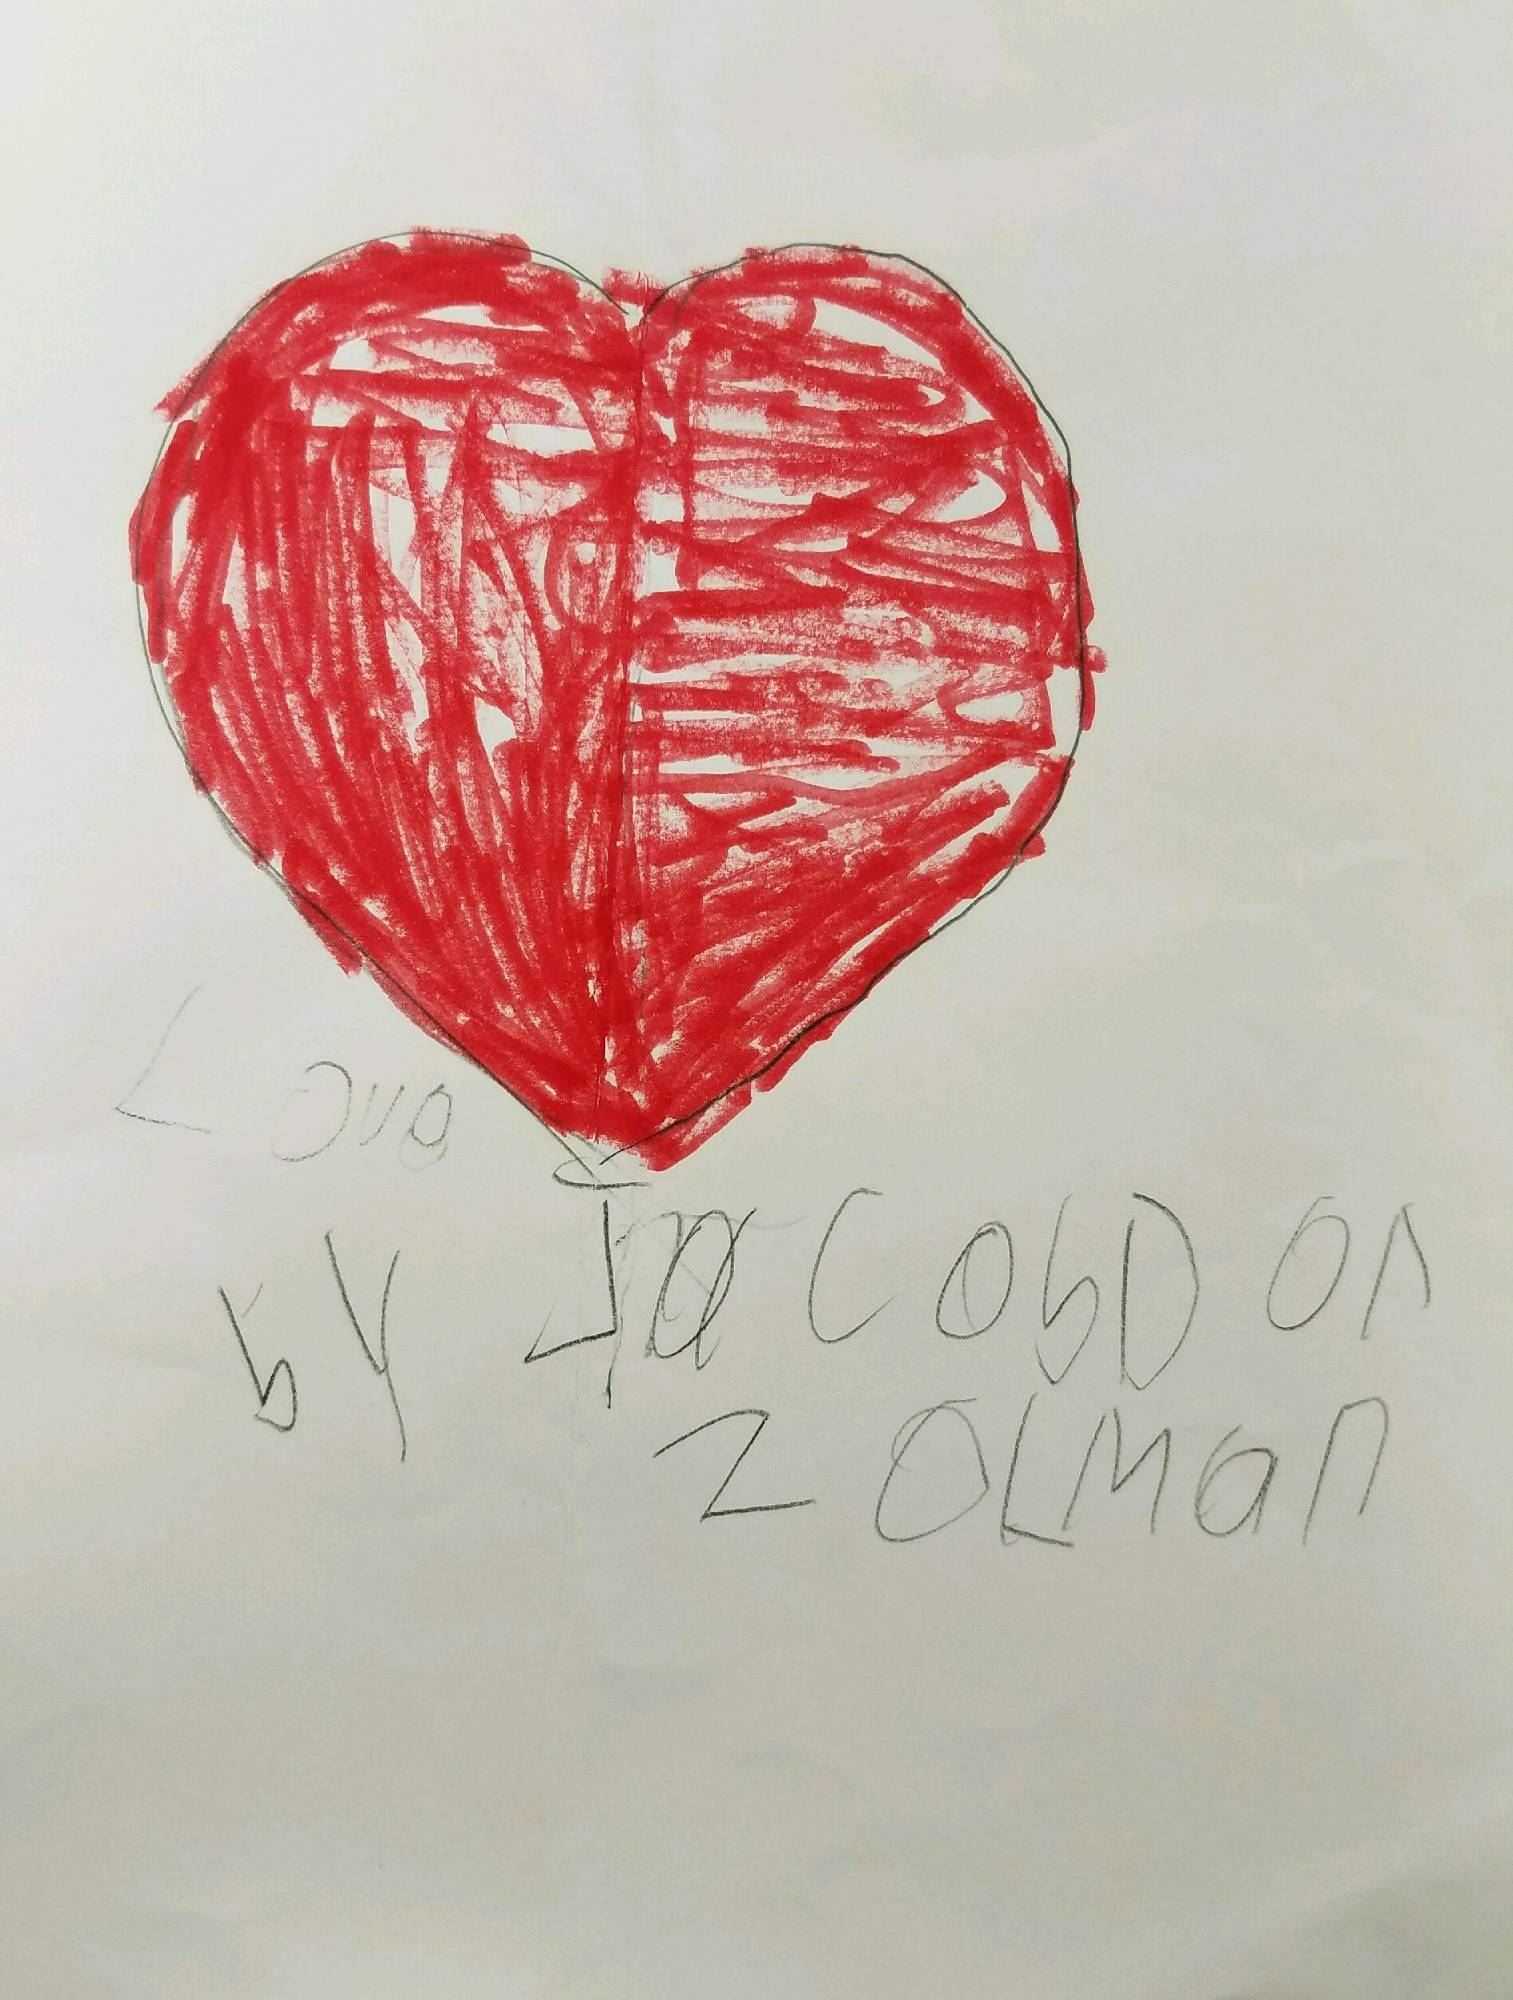 Love
by JacobDon
Zolman